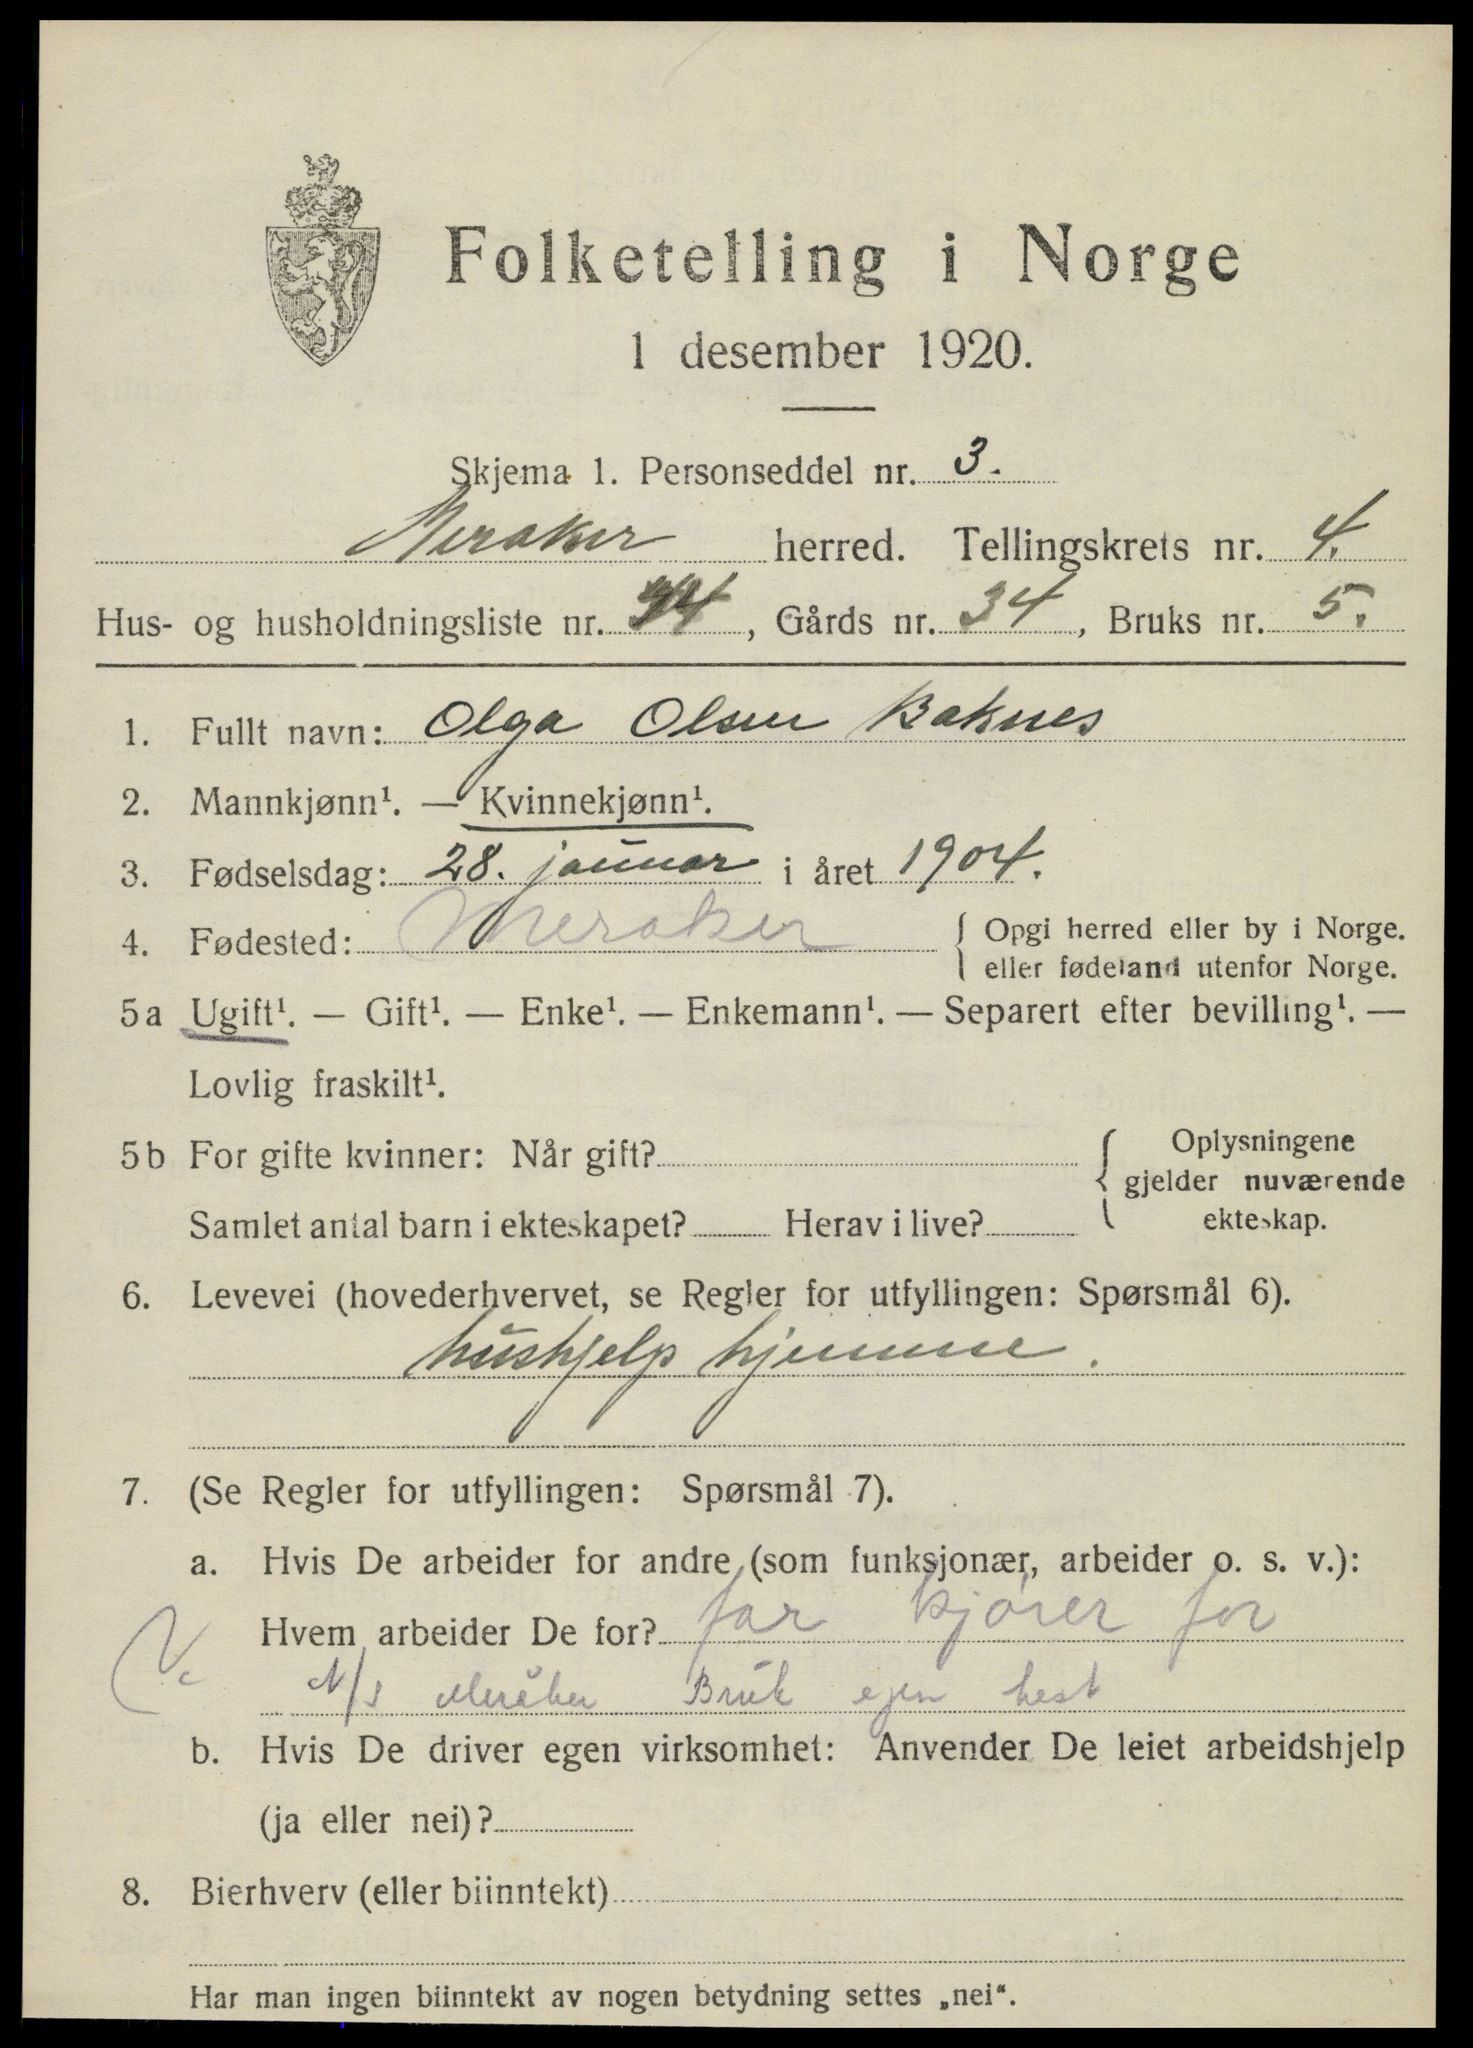 Folketelling i Norge
1 desember 1920.
Skjema 1. Personseddel nr. 3.
Meraker herred. Tellingskrets nr. 4.
Hus- og husholdningsliste nr. , Gårds nr. 34, Bruks nr. 5.
1. Fullt navn: Olga Olsen Baknes
2. Mannkjønn¹. — Kvinnekjønn¹.
3. Fødselsdag: 28. januar i året 1904.
4. Fødested: Meraker { Opgi herred eller by i Norge.
eller fødeland utenfor Norge.
5a Ugift¹. — Gift¹. — Enke¹. — Enkemann¹. — Separert efter bevilling¹. —
Lovlig fraskilt¹.
5b For gifte kvinner: Når gift? { Oplysningene
gjelder nuværende
Samlet antal barn i ekteskapet? Herav i live? ekteskap.
6. Levevei (hovederhvervet, se Regler for utfyllingen: Spørsmål 6).
hushjelp hjemme.
7. (Se Regler for utfyllingen: Spørsmål 7).
a. Hvis De arbeider for andre (som funksjonær, arbeider o. s. v.):
Hvem arbeider De for? far kjører for
A/S Meråker Bruk egen hest
b. Hvis De driver egen virksomhet: Anvender De leiet arbeidshjelp
(ja eller nei)?
8. Bierhverv (eller biinntekt)
Har man ingen biinntekt av nogen betydning settes „nei“.